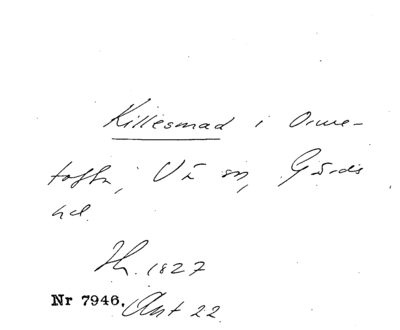 Killesmad i Orme-
tofta, Vä sn, Gärds
hd.
Th. 1827
Nr 7946. Ant 22